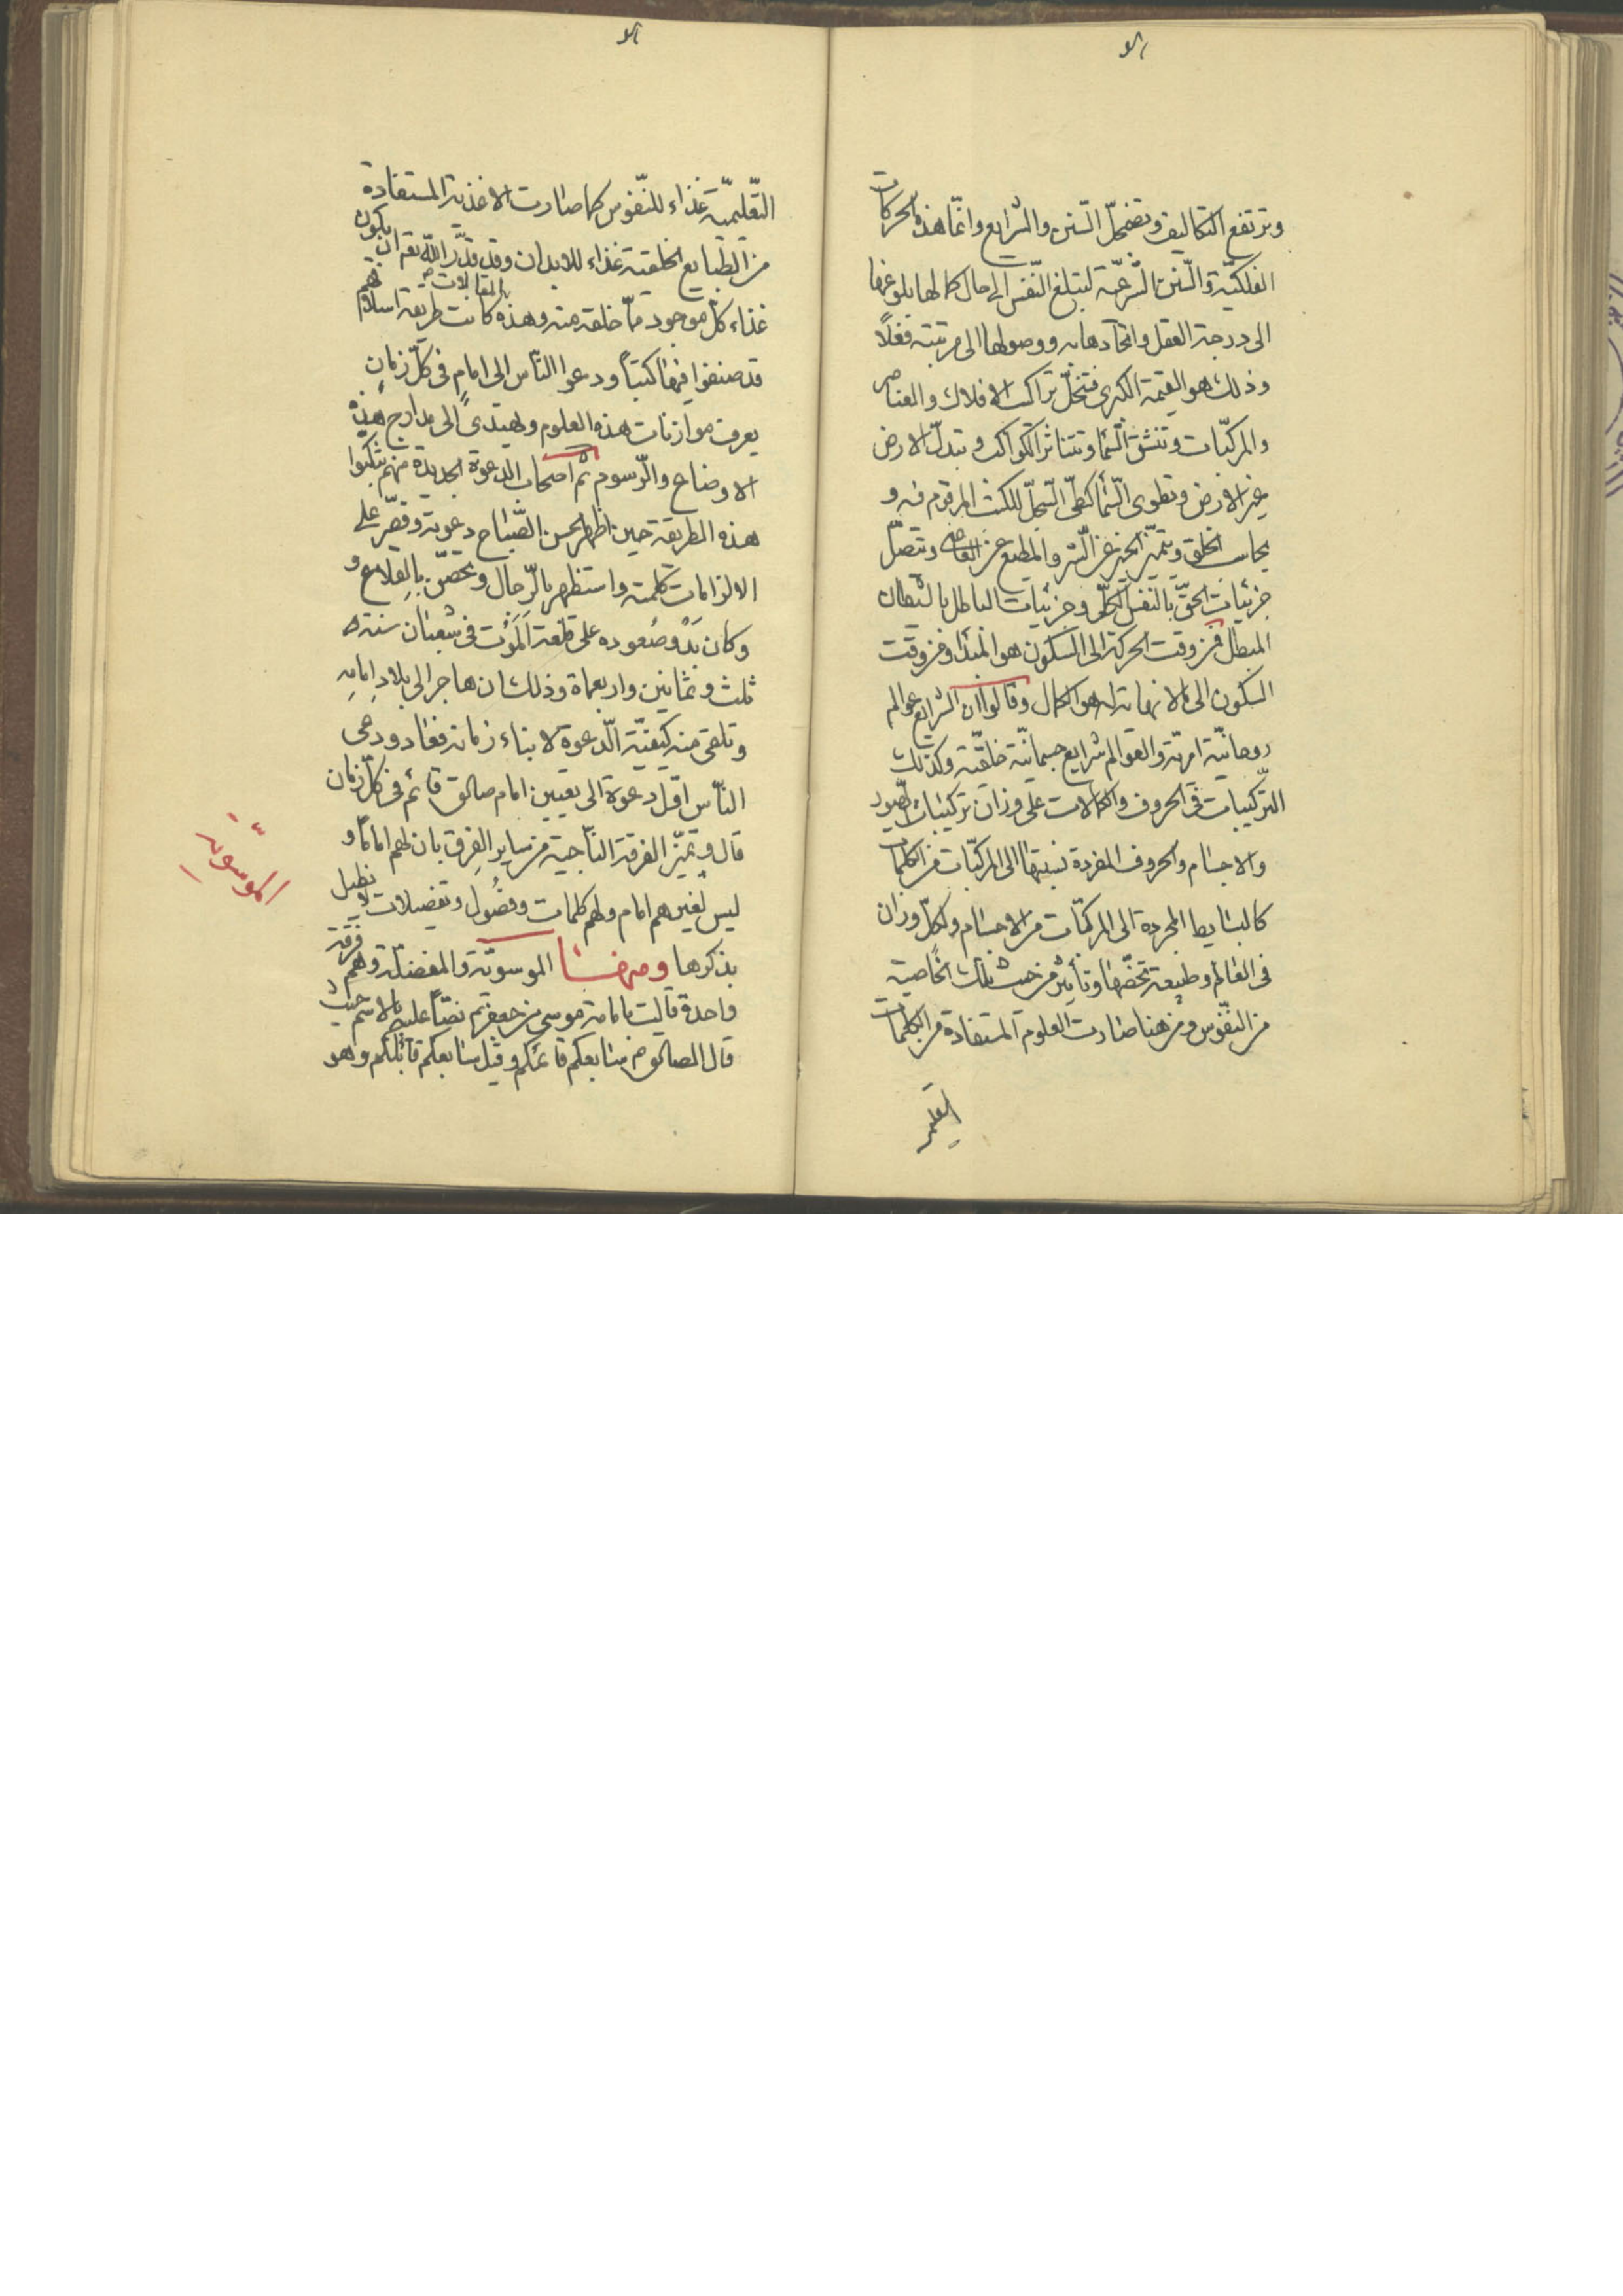 وترتفع التكاليف وتضمحلّ السّنن والشرايع وانّما هذه الحركات
الفلكيّة والسّنن الشّرعيّة لتبلغ النّفس الى حال كمالها وبلوغها
الى درجة العقل واتحادها به ووصولها الى مرتبته فعلًا
وذلك هو القيمة الكبرى فتنحلّ تراكيب الافلاك والعناصر
والمركبّات وتنشق السّما وتتناثر الكواكب وتبدلّ الارض
غير الارض وتطوى السّما كطىّ السّجلّ للكتب المرقوم فيه و
يحاسب الخلق ويتميّز الخير عن الشّر والمطيع عن العاصى وتتصلّ
جزئيات الحقّ بالنفس الكلّى وجزئيات الباطل بالشيطان
المبطل فمن وقت الحركة الى السكون هو المبدأ ومن وقت
السكون الى ما لا نهاية له هو الكمال وقالوا ان الشرايع عوالم
روحانيّة امريّة والعوالم شرايع جسمانيّة خلقيّة وكذلك
التركيبات فى الحروف والكلمات على وزان تركيبات الصور
والاجسام والحروف المفردة نسبتها الى المركبّات من الكلمات
كالبسايط المجردة الى المركبّات من الاجسام ولكل وزان
فى العالم وطبيعة يخصّها وتأثير من حيث تلك الخاصية
من النفّوس ومن هنا صارت العلوم المستفادة من الكلمات
التّعليميّة غذاء للنّفوس كما صارت الاغذية المستفادة
من الطّبايع الخلقية غذاء للابدان وقد قدّر اللّه تعم ان يكون
غذاء كلّ موجود ممّا خلقه منه وهذه المقابلات كانت طريقة اسلافهم
قد صنفوا فيها كتبًا ودعوا النّاس الى امام فى كلّ زمان
يعرف موازنات هذه العلوم ويهتدى الى مدارج هذه
الاوضاع والرّسوم ثم اصحاب الدعوة الجديدة منهم تنكبوا
هذه الطريقة حين اظهر الحسن الصّباح دعوته وقصّر على
الالزامات كلمته واستظهر بالرّجال وتحصّن بالقلاع و
وكان بدو صعوده على قلعة الموت فى شعبان سنة
ثلث وثمانين واربعماة وذلك ان هاجر الى بلاد امامه
وتلقى منه كيفيّة الدّعوة لابناء زمانه فعاد ودعى
النّاس اوّل دعوة الى تعيين امام صادق قائم فى كلّ زمان
قال وتميّز الفرقة النّاجية من ساير الفرق بان لهم اماما و
ليس لغيرهم امام ولهم كلمات وفصُول وتفصيلات لا نطيل
بذكرها ومنها الموسويّة والمفضليّة وهم فرقة
واحدة قالت بامامة موسى بن جعفر نصّاً عليه بالاسم حيث
قال الصادق سابعكم قائمكم وقيل سابعكم قائلكم وهو
الموسوية